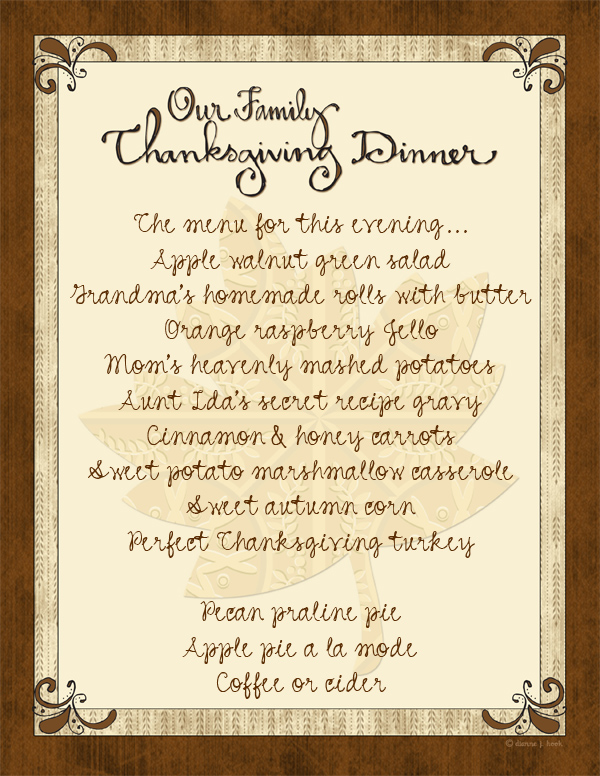 Our Family
Thanksgiving Dinner
The menu for this evening...
Apple walnut green salad
Grandma's homemade rolls with butter
Orange raspberry Jello
Mom's heavenly mashed potatoes
Aunt Ida's secret recipe gravy
Cinnamon & honey carrots
Sweet potato marshmallow casserole
Sweet autumn corn
Perfect Thanksgiving turkey
Pecan praline pie
Apple pie a la mode
Coffee or cider
© dianne j. hook